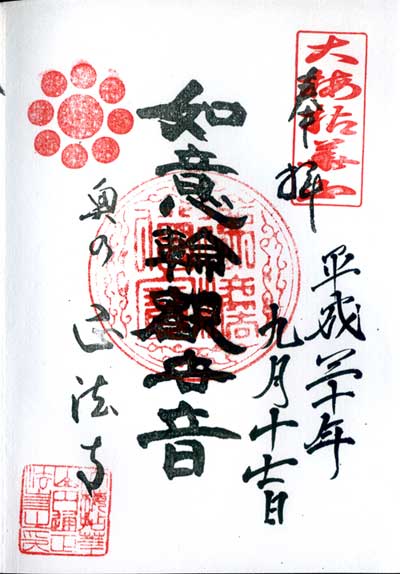 大梅拈華山
奉拝
平成二十年
九月十七日
如意輪観世音
奥の正法寺